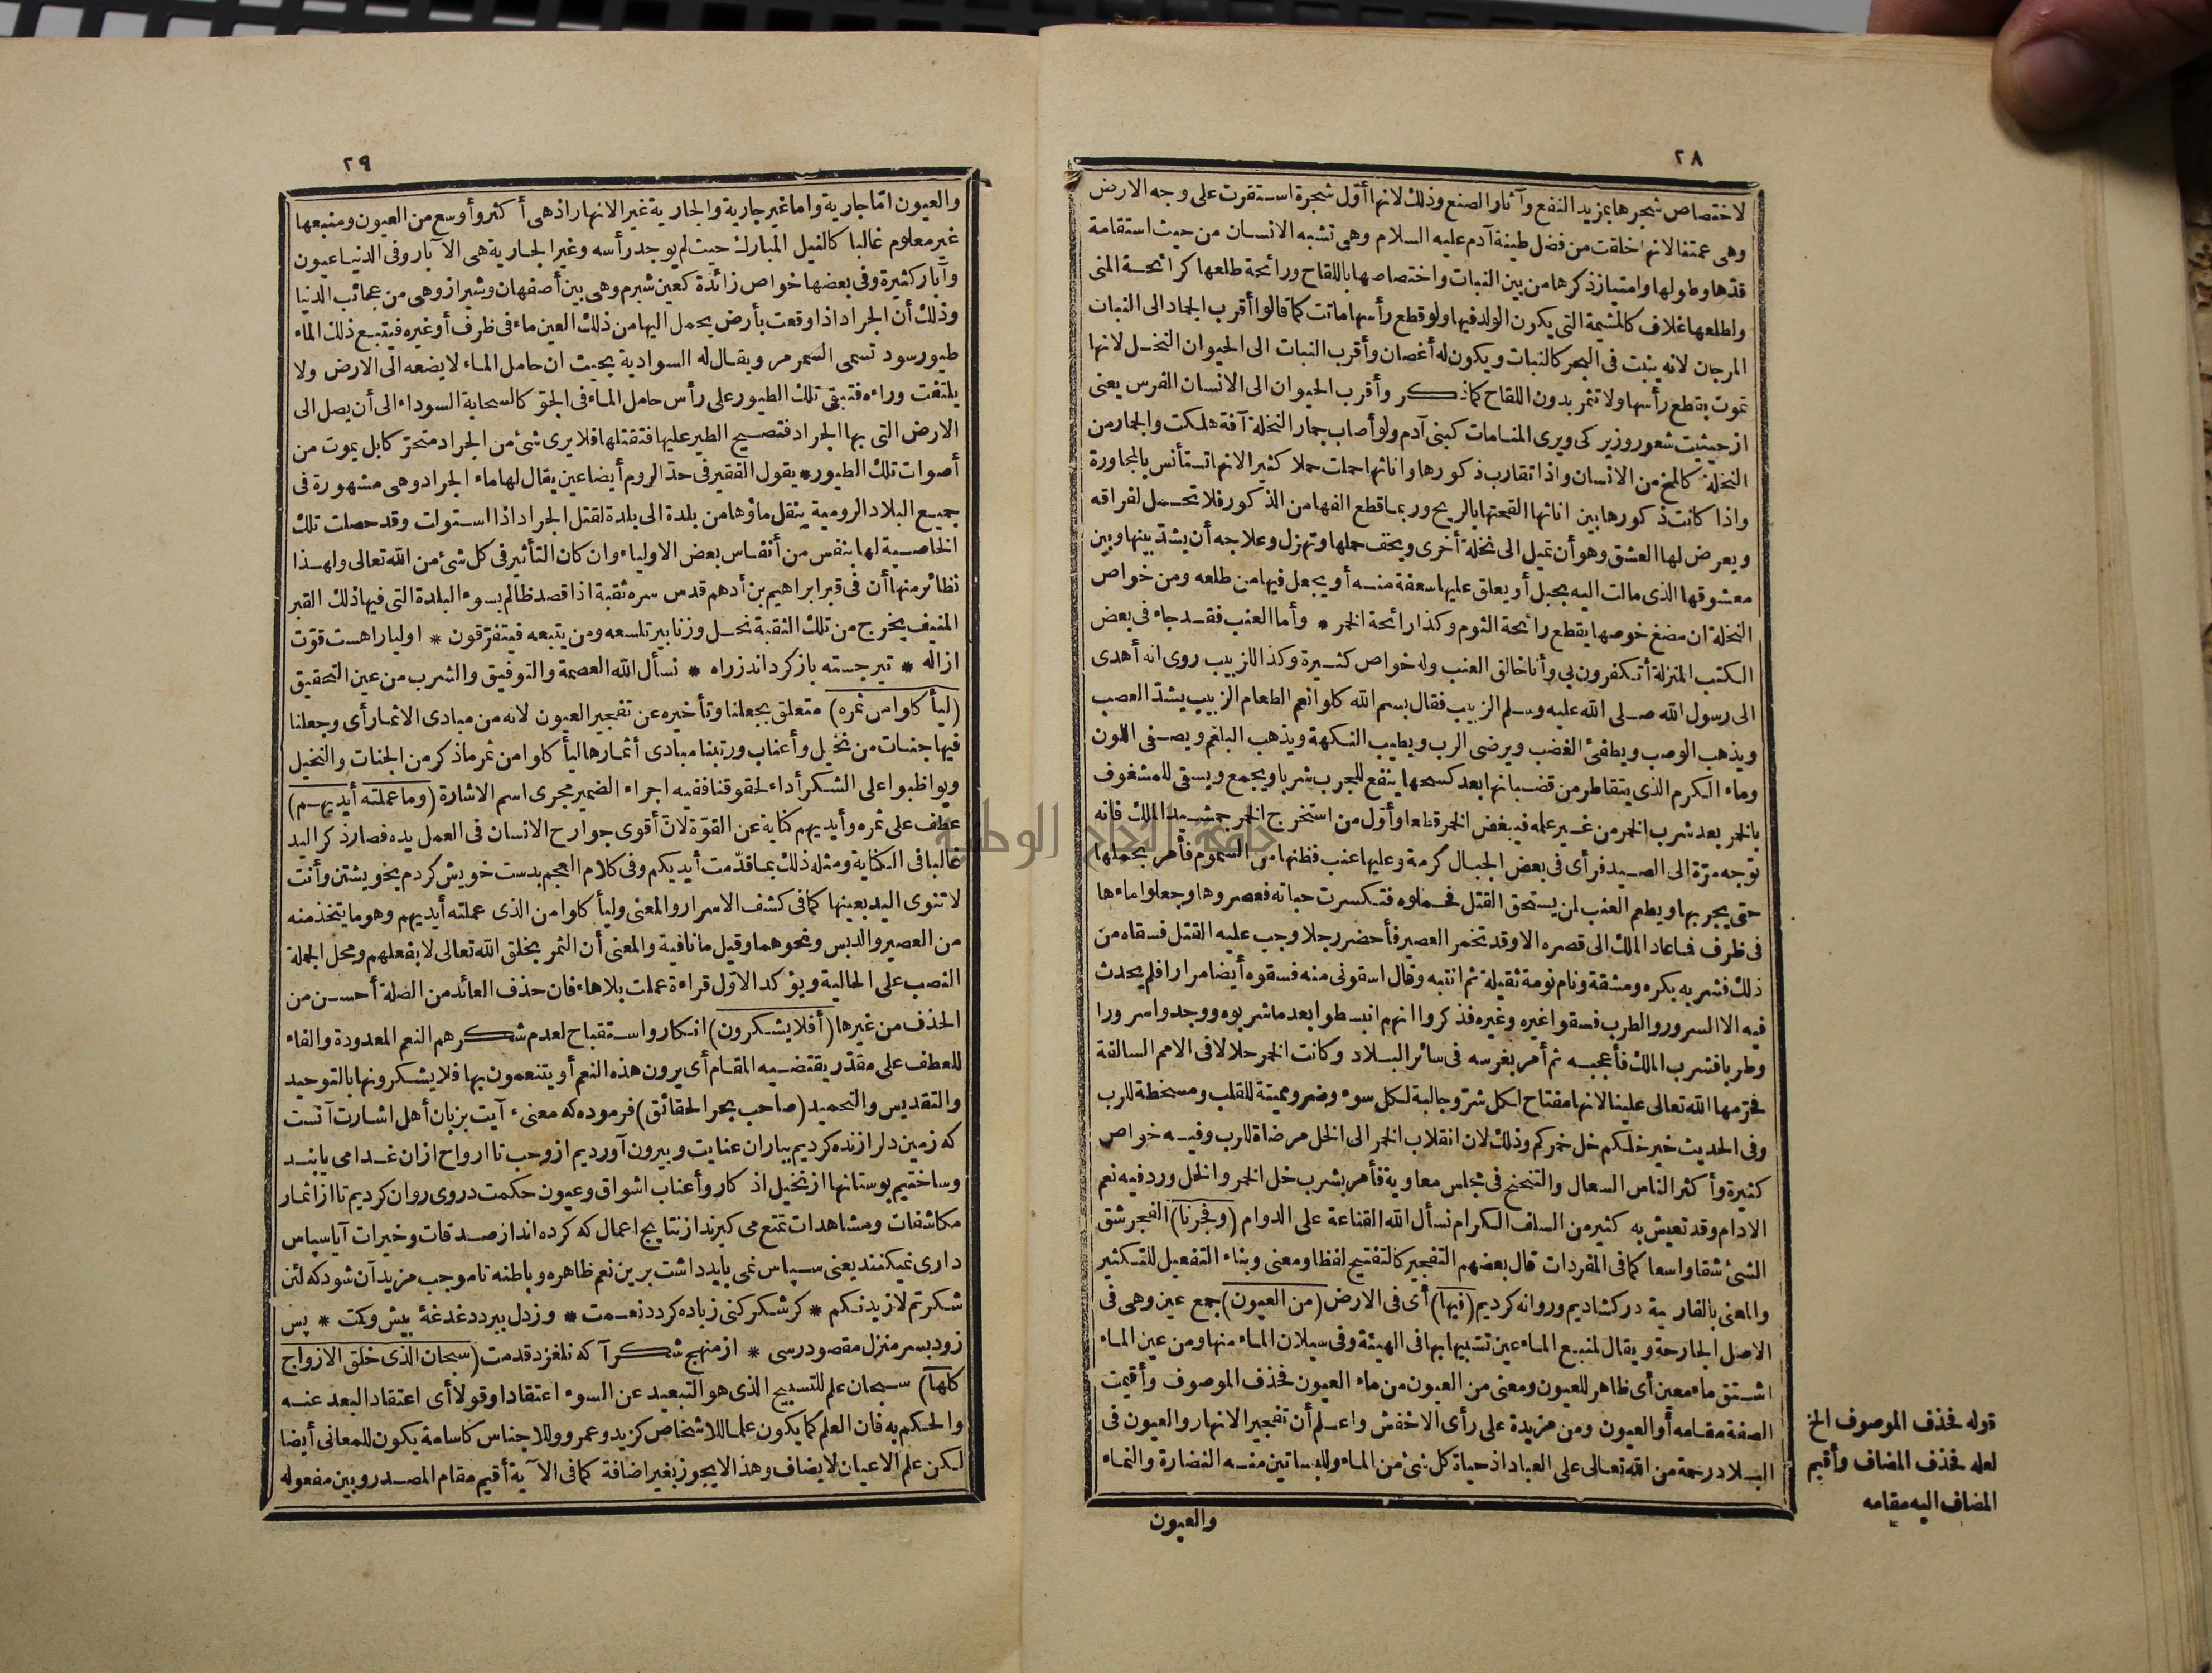 ٢٨
لاختصاص شجرها بمزيد النفع وآثار الصنع وذلك لانها أوّل شجرة استقرت على وجه الارض
وهى عمتنا لانها خلقت من فضل طينة آدم عليه السلام وهى تشبه الانسان من حيث استقامة
قدّها وطولها وامتياز ذكرها من بين النبات واختصاصها باللقاح ورائحة طلعها كرائحة المنى
ولطلعها غلاف كالمشيمة التى يكون الولد فيها ولو قطع رأسها ماتت كما قالوا أقرب الجماد الى النبات
المرجان لانه ينبت فى البحر كالنبات ويكون له أغصان وأقرب النبات الى الحيوان النخل لانها
تموت بقطع رأسها ولا تثمر بدون اللقاح كما ذكر وأقرب الحيوان الى الانسان الفرس يعنى
از حيثيت شعور وزيركى ويرى المنامات كبنى آدم ولو أصاب جمار النخلة آفة هلكت والجمار من
النخلة كالمخ من الانسان واذا تقارب ذكورها واناثها حملت حملا كثيرا لانها تستأنس بالمجاورة
واذا كانت ذكورها بين اناثها القحتها بالريح وربما قطع الفها من الذكور فلا تحمل لفراقه
ويعرض لها العشق وهو أن تميل الى نخلة أخرى ويخف حملها وتهزل وعلاجه أن يشدّ بينها وبين
معشوقها الذى مالت اليه بحبل أو يعلق عليها سعفة منه أو يجعل فيها من طلعه ومن خواص
النخلة ان مضغ خوصها يقطع رائحة الثوم وكذا رائحة الخمر * وأما العنب فقد جاء فى بعض
الكتب المنزلة أتكفرون بى وأنا خالق العنب وله خواص كثيرة وكذا الزبيب روى انه أهدى
الى رسول الله صلى الله عليه وسلم الزبيب فقال بسم الله كلوا نعم الطعام الزبيب يشدّ العصب
ويذهب الوصب ويطفئ الغضب ويرضى الرب ويطيب النكهة ويذهب البلغم ويصفى اللون
وماء الكرم الذى يتقاطر من قضبانها بعد كسحها ينفع للجرب شربا ويجمع ويسقى للمشغوف
بالخمر بعد شرب الخمر من غير علمه فيبغض الخمر قطعا وأوّل من استخرج الخمر جمشيد الملك فانه
توجه مرّة الى الصيد فرأى فى بعض الجبال كرمة وعليها عنب فظنها من السموم فأمر بحملها
حتى يجربها ويطعم العنب لمن يستحق القتل فحملوه فتكسرت حباته فعصروها وجعلوا ماءها
فى ظرف فما عاد الملك الى قصره الا وقد تخمر العصير فأحضر رجلا وجب عليه القتل فسقاه من
ذلك فشربه بكره ومشقة ونام نومة ثقيلة ثم انتبه وقال اسقونى منه فسقوه أيضا مرارا فلم يحدث
فيه الا السرور والطرب فسقوا غيره وغيره فذكروا انهم انبسطوا بعد ما شربوه ووجدوا سرورا
وطربا فشرب الملك فأعجبه ثم أمر بغرسه فى سائر البلاد وكانت الخمر حلالا فى الامم السالفة
فحرّمها الله تعالى علينا لانها مفتاح لكل شرّ وجالبة لكل سوء وضرّ ومميتة للقلب ومسخطة للرب
وفى الحديث خير خلكم خل خمركم وذلك لان انقلاب الخمر الى الخل مرضاة للرب وفيه خواص
كثيرة وأكثر الناس السعال والتنحنح فى مجلس معاوية فأمر بشرب خل الخمر والخل ورد فيه نعم
الادام وقد تعيش به كثير من السلف الكرام نسأل الله القناعة على الدوام (وفجرنا) الفجر شق
الشئ شقا واسعا كما فى المفردات قال بعضهم التفجير كالتفتيح لفظا ومعنى وبناء التفعيل للتكثير
والمعنى بالفارسية دركشاديم وروانه كرديم (فيها) أى فى الارض (من العيون) جمع عين وهى فى
الاصل الجارحة ويقال لمنبع الماء عين تشبيها بها فى الهيئة وفى سيلان الماء منها ومن عين الماء
اشتق ماء معين أى ظاهر للعيون ومعنى من العيون من ماء العيون فحذف الموصوف وأقيمت
الصفة مقامه أو العيون ومن مزيدة على رأى الاخفش واعلم أن تفجير الانهار والعيون فى
البلاد رحمة من الله تعالى على العباد اذ حياة كل شئ من الماء وللبساتين منه النضارة والنماء
والعيون
قوله فحذف الموصوف الخ
لعله فحذف المضاف وأقيم
المضاف اليه مقامه
٢٩
والعيون امّا جارية واما غير جارية والجارية غير الانهار اذ هى أكثر وأوسع من العيون ومنبعها
غير معلوم غالبا كالنيل المبارك حيث لم يوجد رأسه وغير الجارية هى الآبار وفى الدنيا عيون
وآبار كثيرة وفى بعضها خواص زائدة كعين شبرم وهى بين أصفهان وشيراز وهى من عجائب الدنيا
وذلك أن الجراد اذا وقعت بأرض يحمل اليها من ذلك العين ماء فى ظرف أو غيره فيتبع ذلك الماء
طيور سود تسمى السمرمر ويقال له السوادية بحيث ان حامل الماء لا يضعه الى الارض ولا
يلتفت وراءه فتبقى تلك الطيور على رأس حامل الماء فى الجوّ كالسحابة السوداء الى أن يصل الى
الارض التى بها الجراد فتصيح الطير عليها فتقتلها فلا يرى شئ من الجراد متحرّكا بل يموت من
أصوات تلك الطيور * يقول الفقير فى حدّ الروم أيضا عين يقال لها ماء الجراد وهى مشهورة فى
جميع البلاد الرومية ينقل ماؤها من بلدة الى بلدة لقتل الجراد اذا استوات وقد حصلت تلك
الخاصية لها بنفس من أنفاس بعض الاولياء وان كان التأثير فى كل شئ من الله تعالى ولهذا
نظائر منها أن فى قبر ابراهيم بن أدهم قدس سره ثقبة اذا قصد ظالم بسوء البلدة التى فيها ذلك القبر
المنيف يخرج من تلك الثقبة نحل وزنابير تلسعه ومن يتبعه فيتفرّقون * اوليارا هست قوّت
از اله * تير جسته باز كرداند زراه * نسأل الله العصمة والتوفيق والشرب من عين التحقيق
(ليأكلوا من ثمره) متعلق بجعلنا وتأخيره عن تفجير العيون لانه من مبادى الاثمار أى وجعلنا
فيها جنات من نخيل وأعناب ورتبنا مبادى أثمارها ليأكلوا من ثمر ما ذكر من الجنات والنخيل
ويواظبوا على الشكر أداء لحقوقنا ففيه اجراء الضمير مجرى اسم الاشارة (وما عملته أيديهم)
عطف على ثمره وأيديهم كناية عن القوّة لانّ أقوى جوارح الانسان فى العمل يده فصار ذكر اليد
غالبا فى الكناية ومثله ذلك بما قدّمت أيديكم وفى كلام العجم بدست خويش كردم بخويشتن وأنت
لا تنوى اليد بعينها كما فى كشف الاسرار والمعنى وليأكلوا من الذى عملته أيديهم وهو ما يتخذ منه
من العصير والدبس ونحوهما وقيل ما نافية والمعنى أن الثمر بخلق الله تعالى لا بفعلهم ومحل الجملة
النصب على الحالية ويؤكد الاوّل قراءة عملت بلا هاء فان حذف العائد من الصلة أحسن من
الحذف من غيرها (أفلا يشكرون) انكار واستقباح لعدم شكرهم النعم المعدودة والفاء
للعطف على مقدّر يقتضيه المقام أى يرون هذه النعم أو يتنعمون بها فلا يشكرونها بالتوحيد
والتقديس والتحميد (صاحب بحر الحقائق) فرموده كه معنىء آيت بزبان أهل اشارت آنست
كه زمين دلرا زنده كرديم بباران عنايت وبيرون آورديم ازو حب تا ارواح ازان غدا مى يابند
وساختيم بوستانها از نخيل اذكار وأعناب اشواق وعيون حكمت دروى روان كرديم تا از اثمار
مكاشفات ومشاهدات تمتع مى كيرند از نتايج اعمال كه كرده اند از صدقات وخيرات آيا سپاس
دارى نميكنند يعنى سپاس نمى بايد داشت برين نعم ظاهره وباطنه تا موجب مزيد آن شود كه لئن
شكرتم لازيدنكم * كر شكر كنى زياده كردد نعمت * وز دل ببرد دغدغهٔ بيش وكمت * پس
زود بسر منزل مقصود رسى * از منهج شكر آكه نلغزد قدمت (سبحان الذى خلق الازواج
كلها) سبحان علم للتسبيح الذى هو التبعيد عن السوء اعتقادا وقولا أى اعتقاد البعد عنه
والحكم به فان العلم كما يكون علما للاشخاص كزيد وعمرو وللاجناس كاسامة يكون للمعانى أيضا
لكن علم الاعيان لا يضاف وهذا لا يجوز بغير اضافة كما فى الآية أقيم مقام المصدر وبين مفعوله